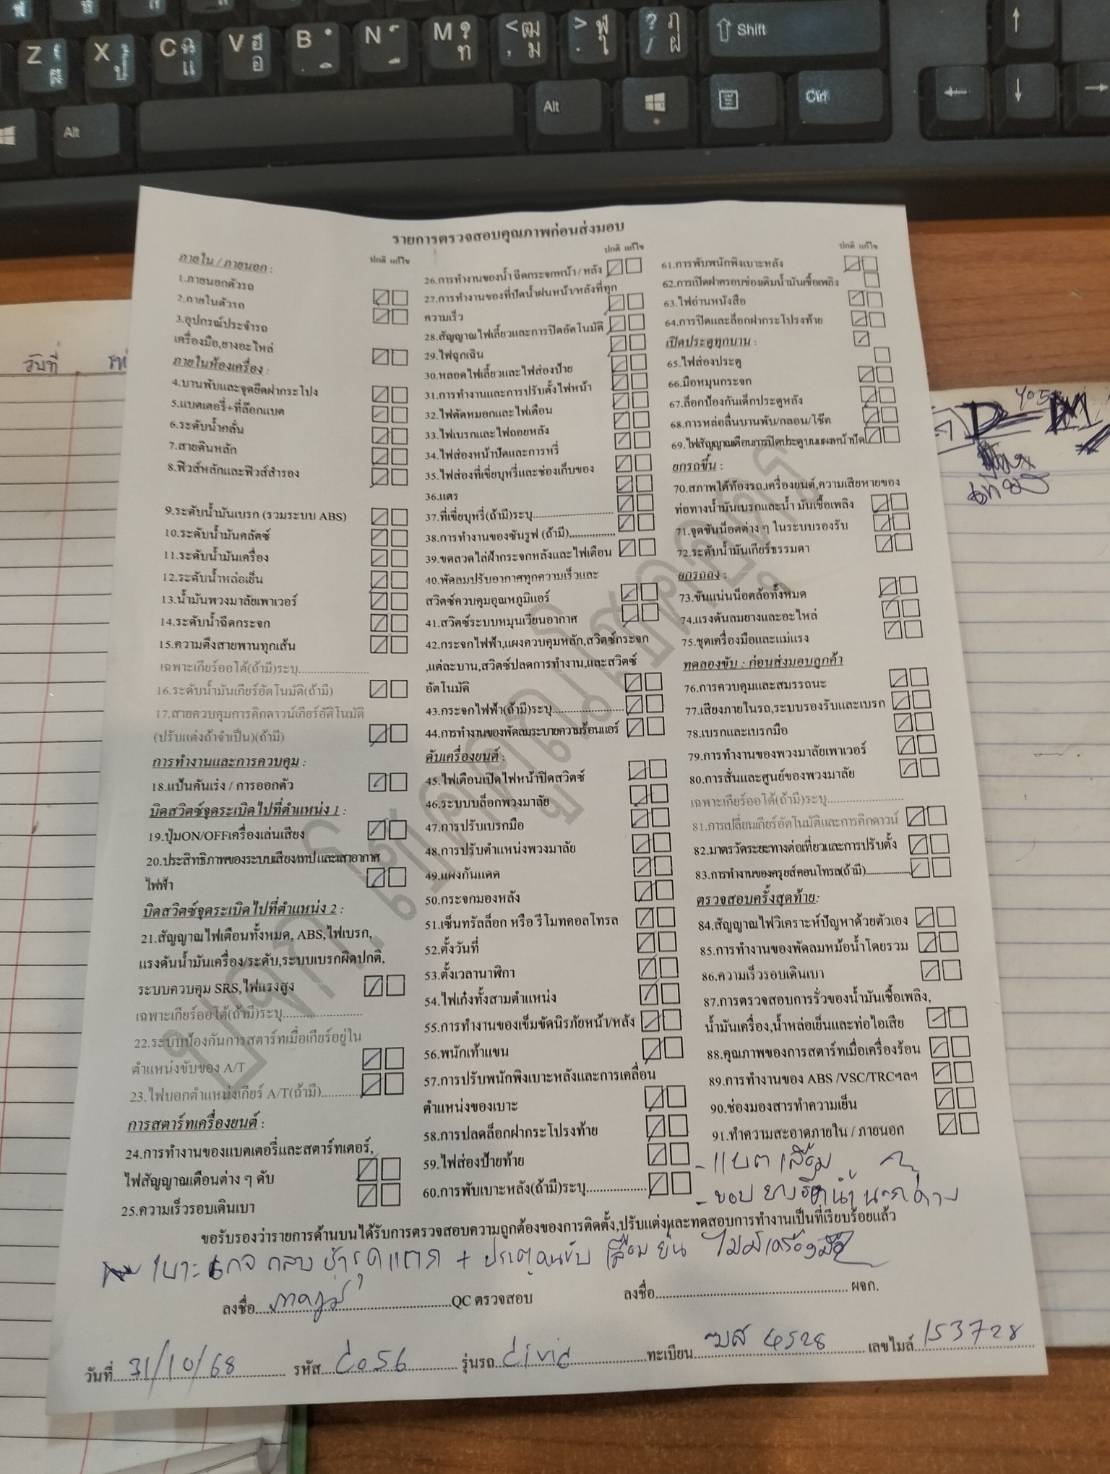 รายการตรวจสอบคุณภาพก่อนส่งมอบ
ภายใน / ภายนอก :
ปกติ แก้ไข
1.ภายนอกตัวรถ
2.ภายในตัวรถ
3.อุปกรณ์ประจำรถ
เครื่องมือ,ยางอะไหล่
ภายในห้องเครื่อง :
4.บานพับและจุดยึดฝากระโปง
5.แบตเตอรี่+ที่ล๊อกแบต
6.ระดับน้ำกลั่น
7.สายดินหลัก
8.ฟิวส์หลักและฟิวส์สำรอง
9.ระดับน้ำมันเบรก (รวมระบบ ABS)
10.ระดับน้ำมันคลัตซ์
11.ระดับน้ำมันเครื่อง
12.ระดับน้ำหล่อเย็น
13.น้ำมันพวงมาลัยเพาเวอร์
14.ระดับน้ำฉีดกระจก
15.ความตึงสายพานทุกเส้น
เฉพาะเกียร์ออโต้(ถ้ามี)ระบุ
16.ระดับน้ำมันเกียร์อัตโนมัติ(ถ้ามี)
17.สายควบคุมการคิกดาวน์เกียร์อัติโนมัติ
(ปรับแต่งถ้าจำเป็น)(ถ้ามี)
การทำงานและการควบคุม :
18.แป้นคันเร่ง / การออกตัว
บิดสวิตซ์จุดระเบิดไปที่ตำแหน่ง 1 :
19.ปุ่มON/OFFเครื่องเล่นเสียง
20.ประสิทธิภาพของระบบเสียงเทปและเสาอากาศ
ไฟฟ้า
บิดสวิตซ์จุดระเบิดไปที่ตำแหน่ง 2 :
21.สัญญาณไฟเตือนทั้งหมด, ABS,ไฟเบรก,
แรงดันน้ำมันเครื่อง/ระดับ,ระบบเบรกผิดปกติ,
ระบบควบคุม SRS,ไฟแรงสูง
เฉพาะเกียร์ออโต้(ถ้ามี)ระบุ
22.ระบบป้องกันการสตาร์ทเมื่อเกียร์อยู่ใน
ตำแหน่งขับของ A/T
23.ไฟบอกตำแหน่งเกียร์ A/T(ถ้ามี)
การสตาร์ทเครื่องยนต์ :
24.การทำงานของแบตเตอรี่และสตาร์ทเตอร์,
ไฟสัญญาณเตือนต่าง ๆ ดับ
25.ความเร็วรอบเดินเบา
ปกติ แก้ไข
26.การทำงานของน้ำฉีดกระจกหน้า / หลัง
27.การทำงานของที่ปัดน้ำฝนหน้า/หลังที่ทุก
ความเร็ว
28.สัญญาณไฟเลี้ยวและการปิดอัตโนมัติ
29.ไฟฉุกเฉิน
30.หลอดไฟเลี้ยวและไฟส่องป้าย
31.การทำงานและการปรับตั้งไฟหน้า
32.ไฟตัดหมอกและไฟเตือน
33.ไฟเบรกและไฟถอยหลัง
34.ไฟส่องหน้าปัดและการหรี่
35.ไฟส่องที่เขี่ยบุหรี่และช่องเก็บของ
36.แตร
37.ที่เขี่ยบุหรี่(ถ้ามี)ระบุ
38.การทำงานของซันรูฟ (ถ้ามี)
39.ขดลวดไล่ฝ้ากระจกหลังและไฟเตือน
40.พัดลมปรับอากาศทุกความเร็วและ
สวิตซ์ควบคุมอุณหภูมิแอร์
41.สวิตซ์ระบบหมุนเวียนอากาศ
42.กระจกไฟฟ้า,แผงควบคุมหลัก,สวิตซ์กระจก
,แต่ละบาน,สวิตซ์ปลดการทำงาน,และสวิตซ์
อัตโนมัติ
43.กระจกไฟฟ้า(ถ้ามี)ระบุ
44.การทำงานของพัดลมระบายความร้อนแอร์
ดับเครื่องยนต์ :
45.ไฟเตือนเปิดไฟหน้าปิดสวิตซ์
46.ระบบบล๊อกพวงมาลัย
47.การปรับเบรกมือ
48.การปรับตำแหน่งพวงมาลัย
49.แผงกันแดด
50.กระจกมองหลัง
51.เซ็นทรัลล็อก หรือ รีโมทคอลโทรล
52.ตั้งวันที่
53.ตั้งเวลานาฬิกา
54.ไฟเก๋งทั้งสามตำแหน่ง
55.การทำงานของเข็มขัดนิรภัยหน้า/หลัง
56.พนักเท้าแขน
57.การปรับพนักพิงเบาะหลังและการเคลื่อน
ตำแหน่งของเบาะ
58.การปลดล็อกฝากระโปรงท้าย
59.ไฟส่องป้ายท้าย
60.การพับเบาะหลัง(ถ้ามี)ระบุ
ปกติ แก้ไข
61.การพับพนักพิงเบาะหลัง
62.การเปิดฝาครอบช่องเติมน้ำมันเชื้อเพลิง
63.ไฟอ่านหนังสือ
64.การปิดและล็อกฝากระโปรงท้าย
เปิดประตูทุกบาน :
65.ไฟส่องประตู
66.มือหมุนกระจก
67.ล็อกป้องกันเด็กประตูหลัง
68.การหล่อลื่นบานพับ/กลอน/โช๊ค
ยกรถขึ้น :
70.สภาพใต้ท้องรถ,เครื่องยนต์,ความเสียหายของ
ท่อทางน้ำมันเบรกและน้ำมันเชื้อเพลิง
71.จุดขันน็อตต่าง ๆ ในระบบรองรับ
72.ระดับน้ำมันเกียร์ธรรมดา
ยกรถลง :
73.ขันแน่นน็อตล้อทั้งหมด
74.แรงดันลมยางและอะไหล่
75.ชุดเครื่องมือและแม่แรง
ทดลองขับ : ก่อนส่งมอบลูกค้า
76.การควบคุมและสมรรถนะ
77.เสียงภายในรถ,ระบบรองรับและเบรก
78.เบรกและเบรกมือ
79.การทำงานของพวงมาลัยเพาเวอร์
80.การสั่นและศูนย์ของพวงมาลัย
เฉพาะเกียร์ออโต้(ถ้ามี)ระบุ
81.การเปลี่ยนเกียร์อัตโนมัติและการคิกดาวน์
82.มาตรวัดระยะทางต่อเที่ยวและการปรับตั้ง
83.การทำงานของครุยส์คอนโทรล(ถ้ามี)
ตรวจสอบครั้งสุดท้าย:
84.สัญญาณไฟวิเคราะห์ปัญหาด้วยตัวเอง
85.การทำงานของพัดลมหม้อน้ำโดยรวม
86.ความเร็วรอบเดินเบา
87.การตรวจสอบการรั่วของน้ำมันเชื้อเพลิง,
น้ำมันเครื่อง,น้ำหล่อเย็นและท่อไอเสีย
88.คุณภาพของการสตาร์ทเมื่อเครื่องร้อน
89.การทำงานของ ABS /VSC/TRCฯลฯ
90.ช่องมองสารทำความเย็น
91.ทำความสะอาดภายใน / ภายนอก
- แบตเสื่อม
ขอรับรองว่ารายการด้านบนได้รับการตรวจสอบความถูกต้องของการติดตั้ง,ปรับแต่งและทดสอบการทำงานเป็นที่เรียบร้อยแล้ว
ไม่มีเครื่องมือ
ลงชื่อ QC ตรวจสอบ ลงชื่อ ผจก.
วันที่ 31/10/68 รหัส รุ่นรถ civic ทะเบียน 4528 เลขไมล์ 153728
วันที่
Z X C V B N M
Shift
Alt Alt Ctrl